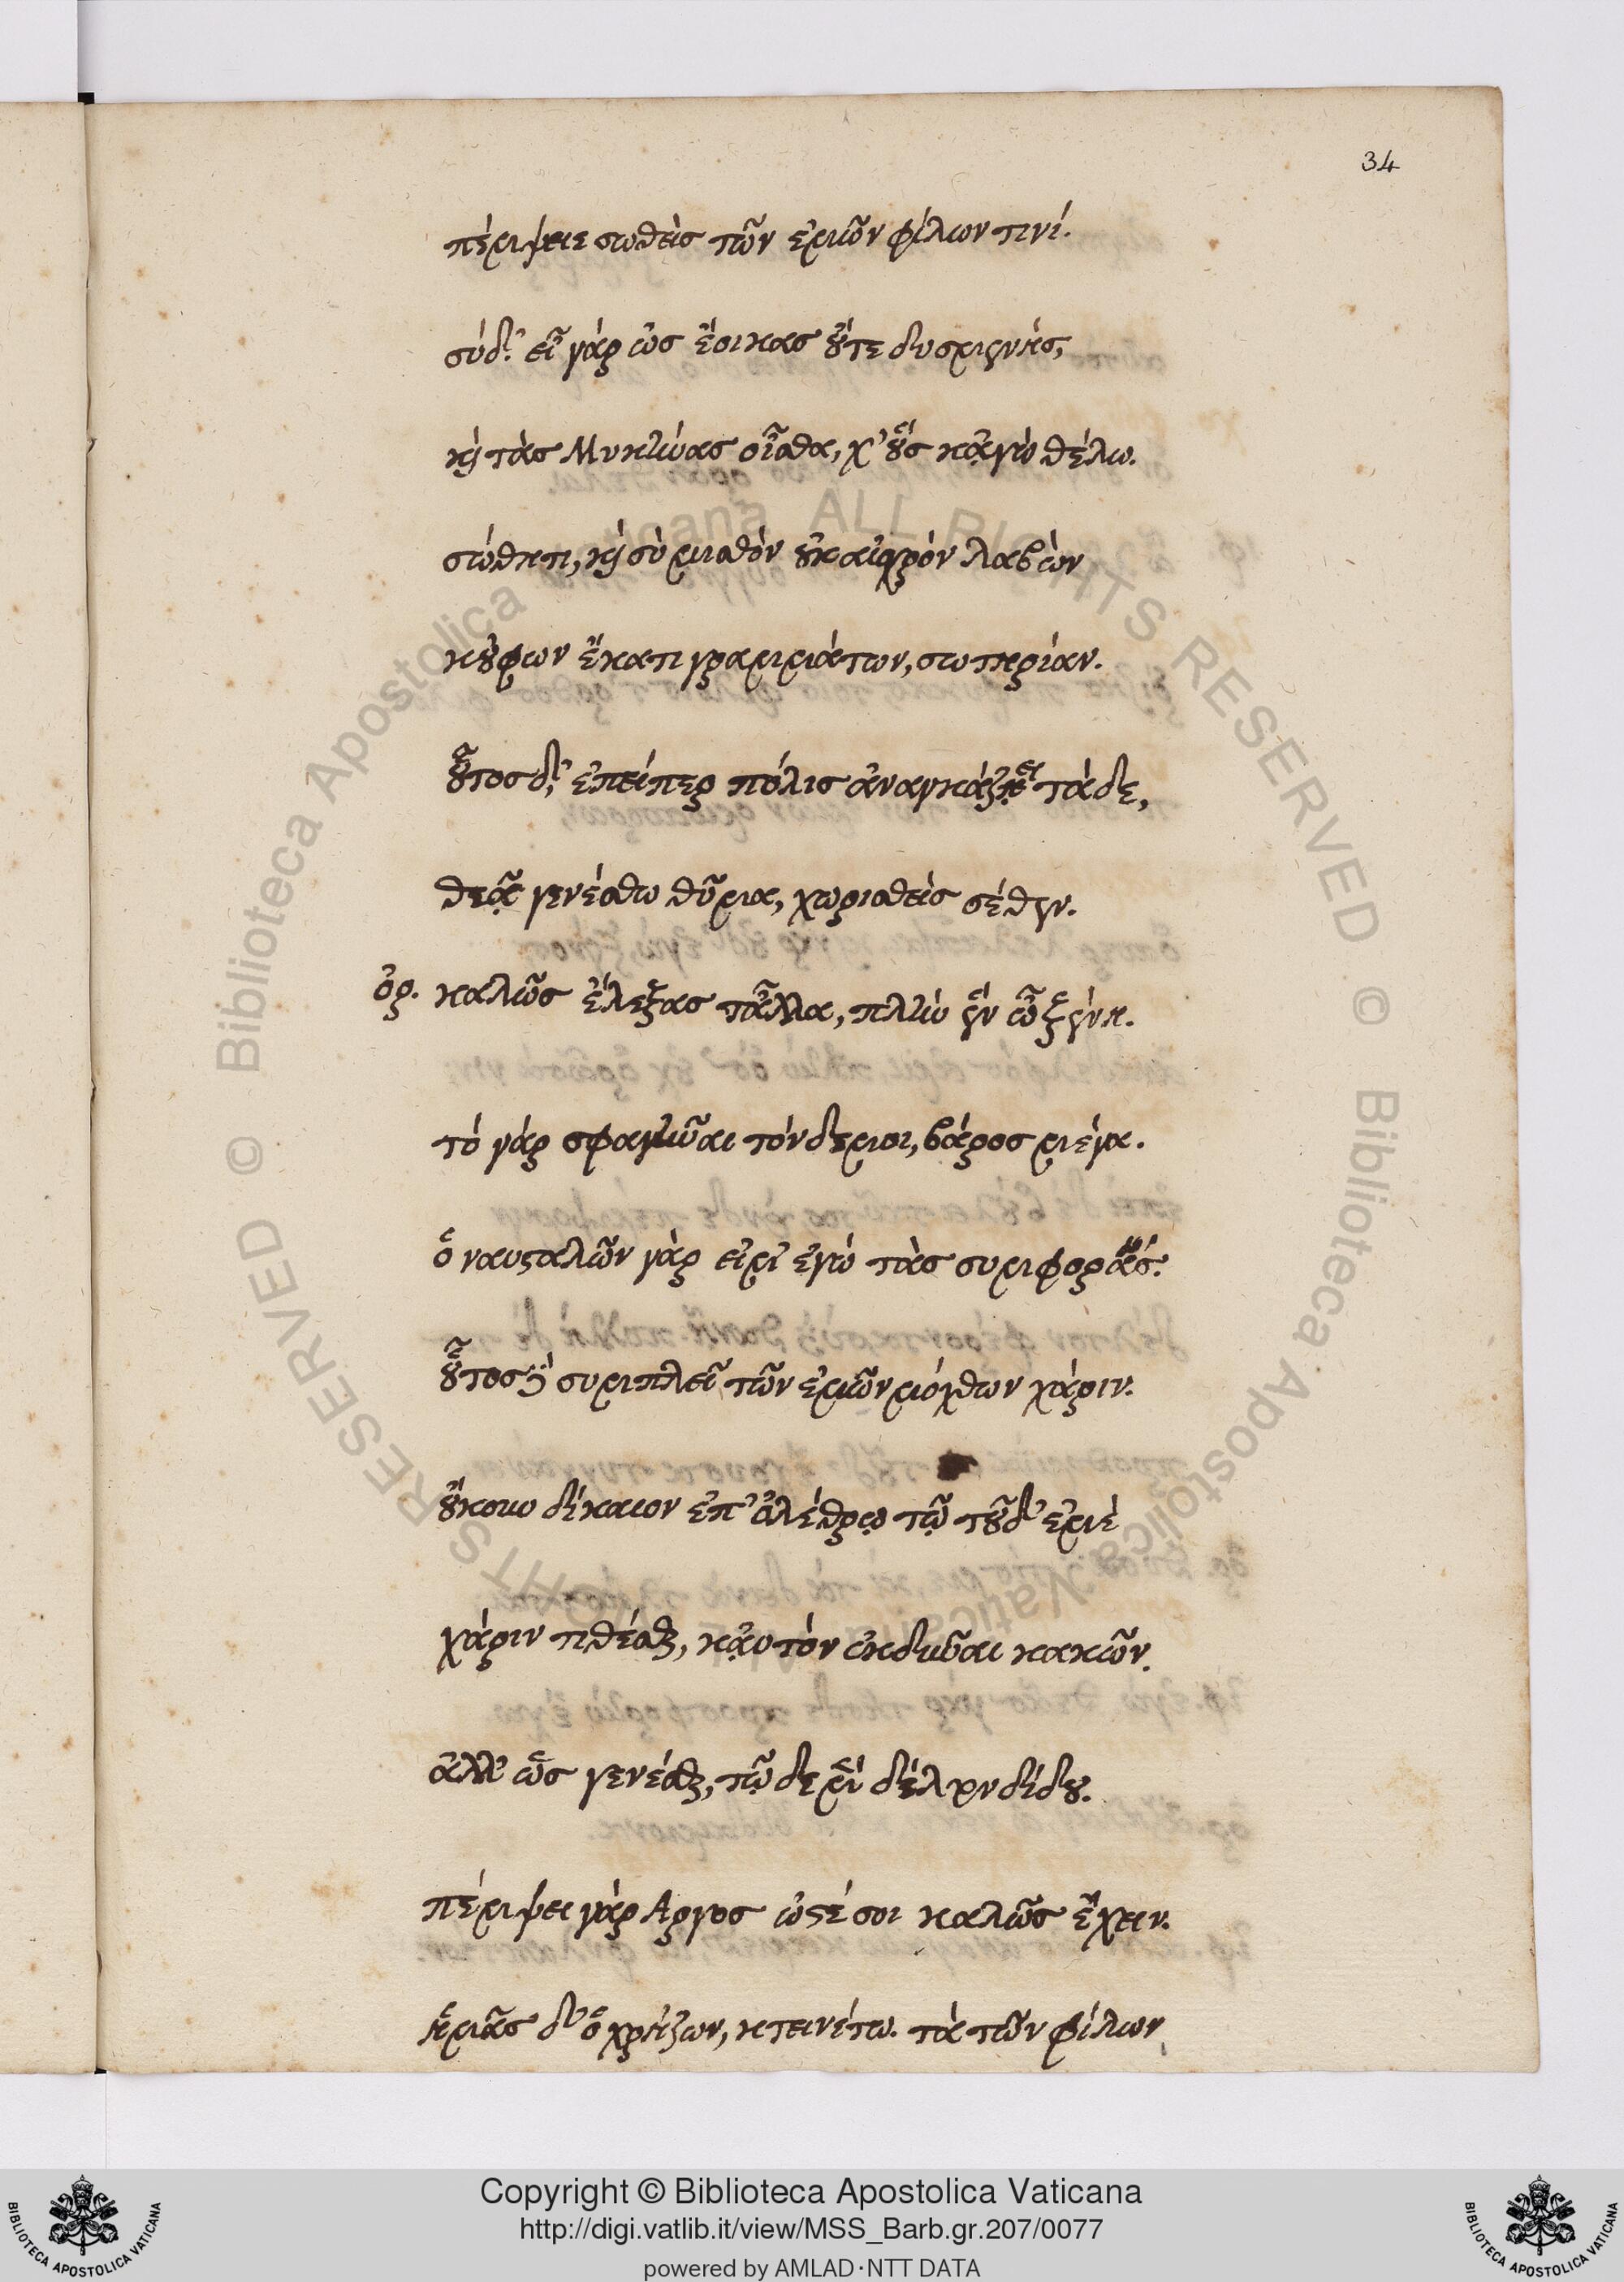 34
πέμψειε σωθεὶς τῶν ἐμῶν φίλων τινί.
σὺ δ'. εἶ γάρ ὡς ἔοικας οὔτε δυσμενής,
καὶ τὰς Μυκήνας οἶσθα, χ' οὓς κᾀγὼ θέλω.
σώθητι, καὶ σὺ μισθὸν οὐκ αἰσχρόν λαβὼν
κούφων ἕκατι γραμμάτων, σωτηρίαν.
οὗτος δ', ἐπείπερ πόλις ἀναγκάζει τάδε,
θεᾷ γενέσθω θῦμα, χωρισθεὶς σέθεν.
ὀρ. καλῶς ἔλεξας τἆλλα, πλὴν ἓν ὦ ξένη.
τό γάρ σφαγῆναι τόνδε μοι, βάρος μέγα.
ὁ ναυστολῶν γὰρ εἰμ' ἐγώ τὰς συμφοράς.
οὗτος δὲ συμπλεῖ τῶν ἐμῶν μόχθων χάριν.
οὔκουν δίκαιον ἐπ' ὀλέθρῳ τῷ τοῦδ' ἐμὲ
χάριν τίθεσθαι, καὐτὸν ἐκδῦναι κακῶν.
ἀλλ' ὣς γενέσθω, τῷδε μὲν δέλτον δίδου.
πέμψει γὰρ Αργος ὥστέ σοι καλῶς ἔχειν.
ἡμᾶς δ' ὁ χρῄζων, κτεινέτω. τὰ τῶν φίλων
Copyright © Biblioteca Apostolica Vaticana
http://digi.vatlib.it/view/MSS_Barb.gr.207/0077
powered by AMLAD·NTT DATA
BIBLIOTECA APOSTOLICA VATICANA
BIBLIOTECA APOSTOLICA VATICANA
© Biblioteca Apostolica Vaticana ALL RIGHTS RESERVED © Biblioteca Apostolica Vaticana ALL RIGHTS RESERVED